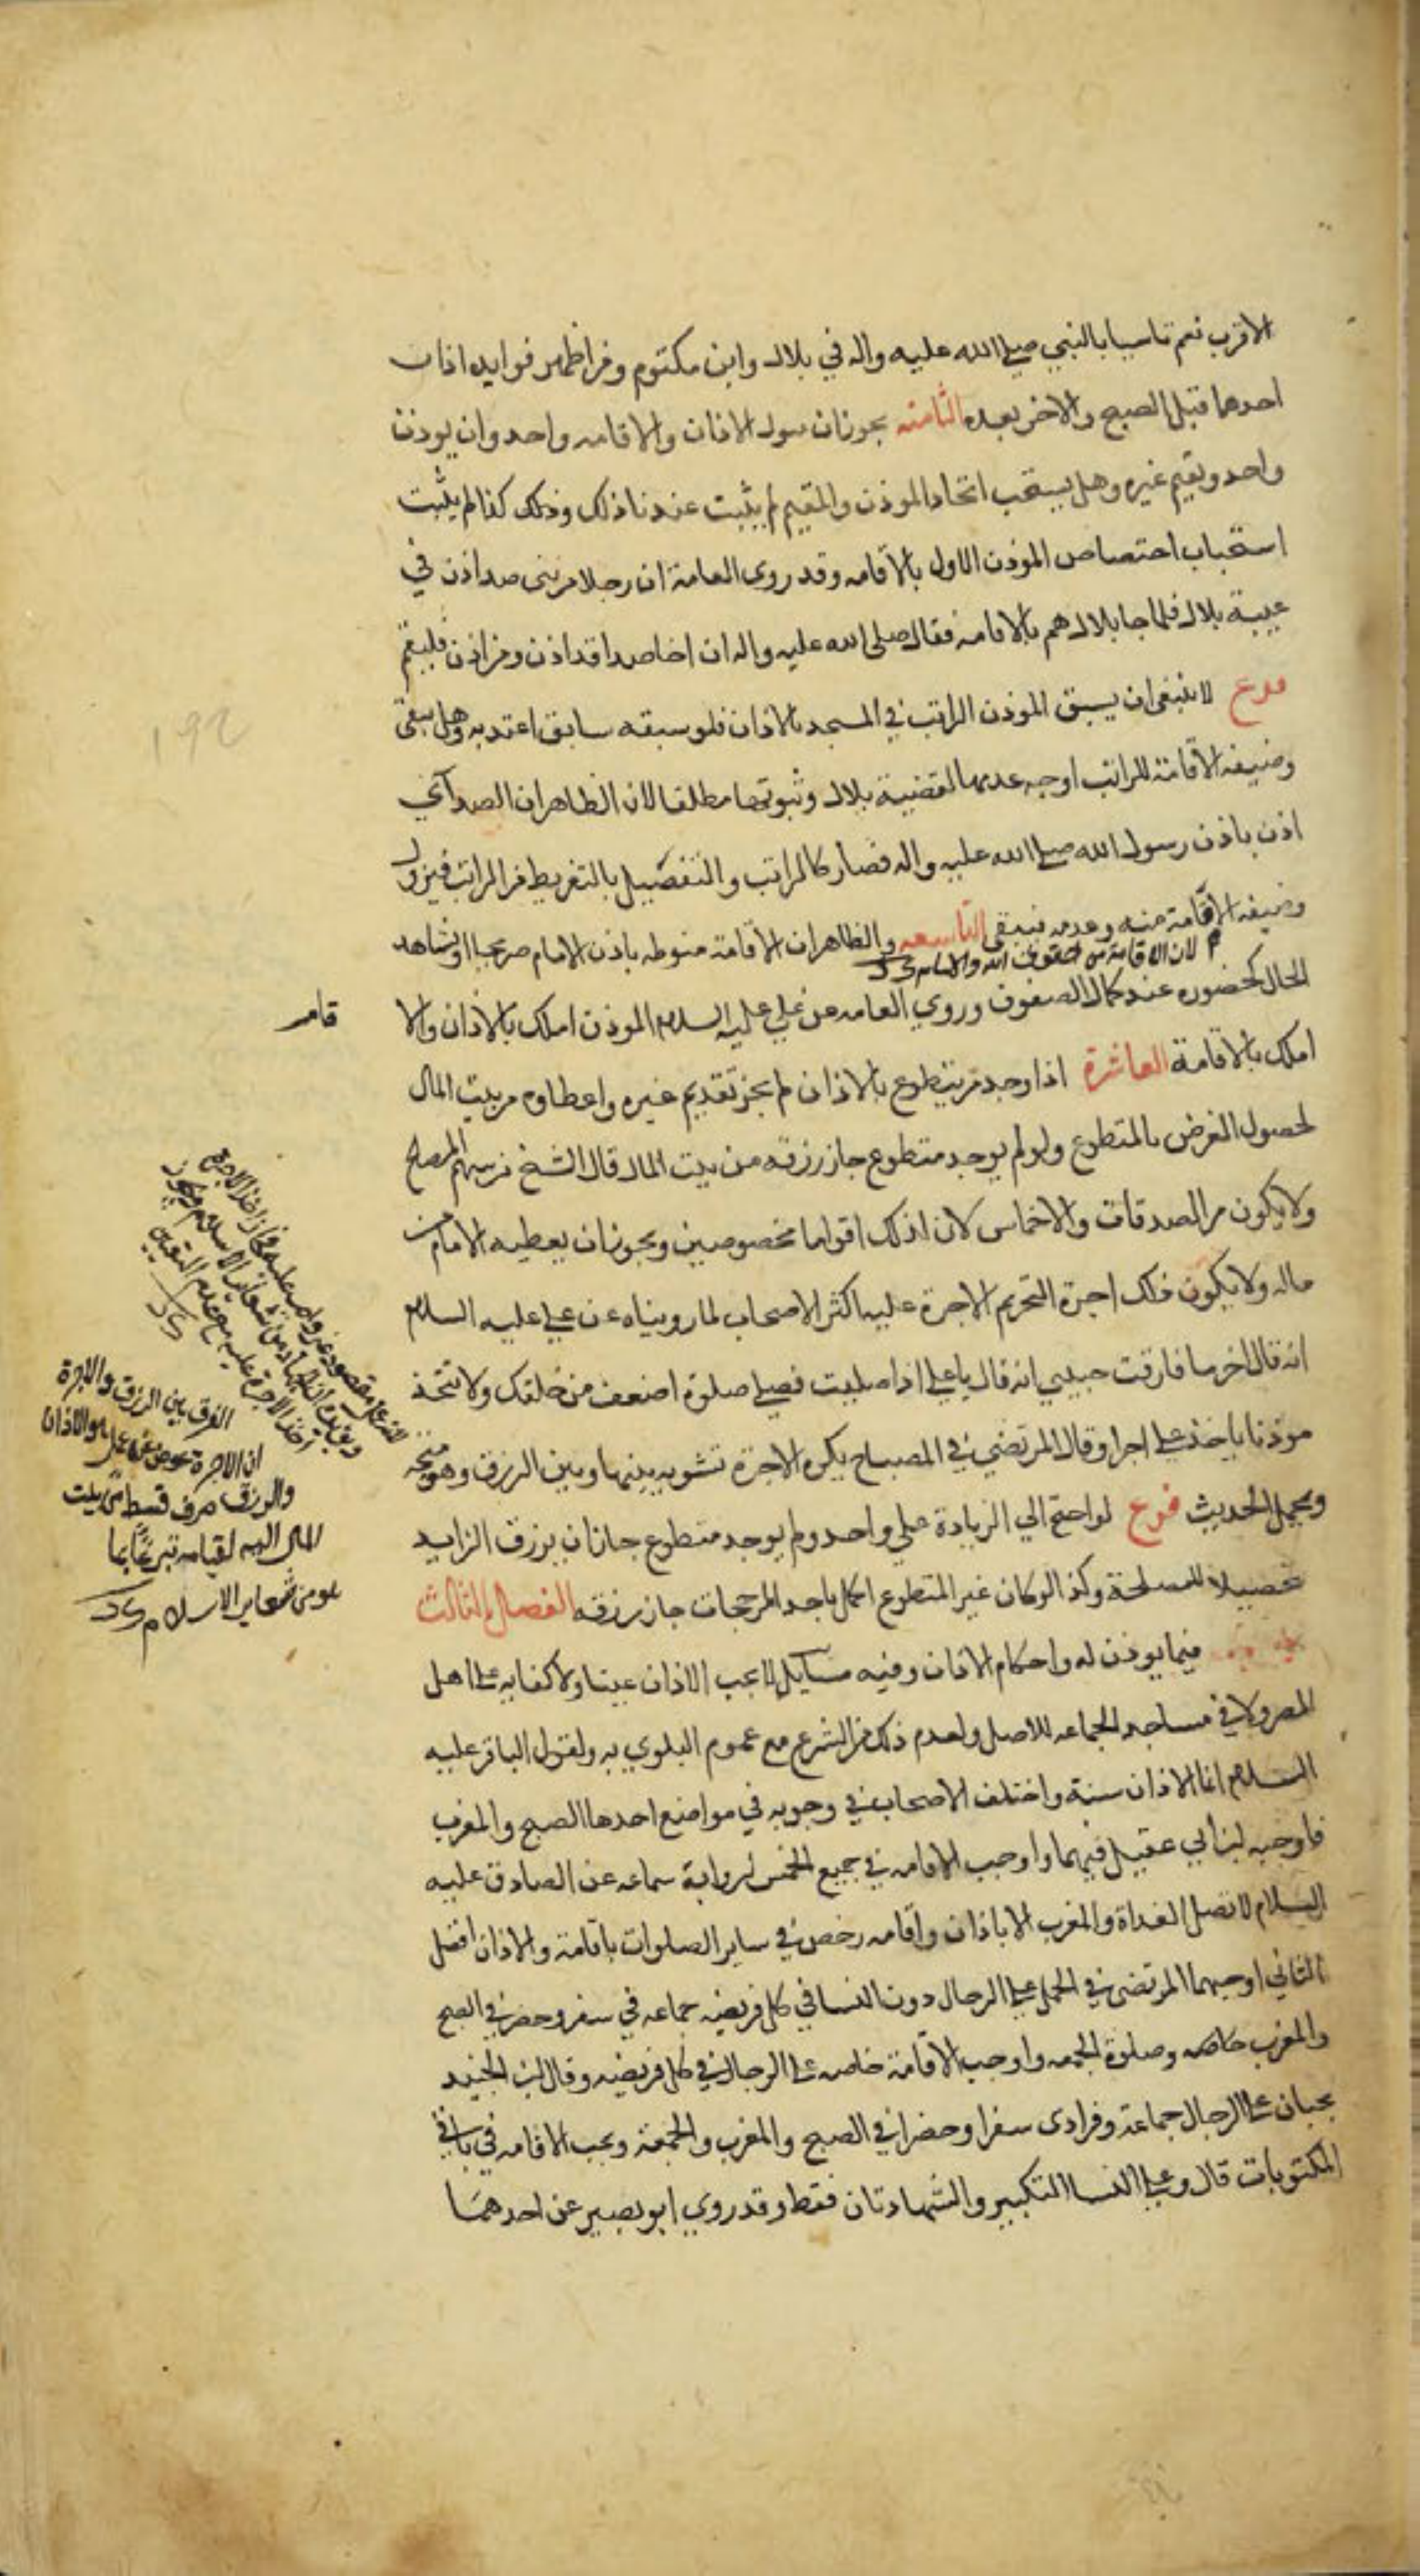 الاقرب نعم تاسيا بالنبي صلى الله عليه واله في بلال وابن مكتوم ومن اظهر فوايده اذان
احدهما قبل الصبح والاخر بعده الثامنه يجوز ان يتولى الاذان والاقامه واحد وان يوذن
واحد ويقيم غيره وهل يستحب اتحاد الموذن والمقيم لم يثبت عندنا ذلك وذلك كذا لم يثبت
استحباب اختصاص الموذن الاول بالاقامه وقد روى العامة ان رجلا من بنى صدا اذن في
غيبة بلال فلما جا بلال هم بالاقامة فقال صلى الله عليه واله ان اخا صدا قد اذن ومن اذن فليقم
فرع لا ينبغى ان يسبق الموذن الراتب في المسجد بالاذان فلو سبقه سابق اعتد به وهل يبقى
وضيفه الاقامة للراتب اوجه عدمها لقضية بلال وثبوتها مطلقا لان الظاهر ان الصدآئي
اذن باذن رسول الله صلى الله عليه واله فصار كالراتب والتفصيل بالتفريط من الراتب فيزول
وضيفه الاقامة منه وعدمه فيبقى التاسعه والظاهر ان الاقامة منوطه باذن الامام صريحا او بشاهد
م لان الاقامة من حقوق الله والامام
الحال كحضوره عند كمال الصفوف وروي العامه عن علي عليه السلام الموذن املك بالاذان والا
قامر
املك بالاقامة العاشرة اذا وجد من يتطوع بالاذان لم يجز تقديم غيره واعطاوه من بيت المال
لحصول الغرض بالمتطوع ولو لم يوجد متطوع جاز رزقه من بيت المال قال الشيخ من سهم المصالح
ولا يكون من الصدقات والاخماس لان لذلك اقواما مخصوصين ويجوز ان يعطيه الامام من
ماله ولا يكون ذلك اجرة لتحريم الاجرة عليه اكثر الاصحاب لما رويناه عن علي عليه السلام
انه قال اخر ما فارقت حبيبي انه قال يا علي اذا صليت فصلي صلوة اضعف من خلفك ولا تتخذ
موذنا ياخذ على اجرا وقال المرتضي في المصباح يكره الاجرة تشويه بينها وبين الرزق وهو متجه
ويحمل الحديث فرع لو احتج الي الزيادة علي واحد ولم يوجد متطوع جاز ان يرزق الزايد
تحصيلا للمصلحة وكذا لو كان غير المتطوع اكمل باحد المرجحات جاز رزقه الفصل الثالث
فيما يوذن له واحكام الاذان وفيه مسآيل لا يجب الاذان عينا ولا كفايه على اهل
المصر ولا في مساجد الجماعه للاصل ولعدم ذلك من الشرع مع عموم البلوي به ولقول الباقر عليه
السلام انما الاذان سنة واختلف الاصحاب في وجوبه في مواضع احدها الصبح والمغرب
فاوجبه ابن ابي عقيل فيهما واوجب الاقامه في جميع الخمس لرواية سماعه عن الصادق عليه
السلام لا تصل الغداة والمغرب الا باذان واقامه رخص في ساير الصلوات باقامة والاذان افضل
الثاني اوجبهما المرتضى في الجمل على الرجال دون النسا في كل فريضه جماعه في سفر وحضر في الصبح
والمغرب خاصه وصلوة الجمعه واوجب الاقامة خاصه على الرجال في كل فريضه وقال ابن الجنيد
يجبان على الرجال جماعة وفرادى سفرا وحضرا في الصبح والمغرب والجمعة ويجب الاقامه في باقي
المكتوبات قال وعلى النسا التكبير والشهادتان فقط وقد روي ابو بصير عن احدهما
الفرق بين الرزق والاجرة
ان الاجرة عوض عن عمل هو الاذان
والرزق صرف قسط من بيت
المال اليه لقيامه تبرعا بما
هو من شعاير الاسلام
192